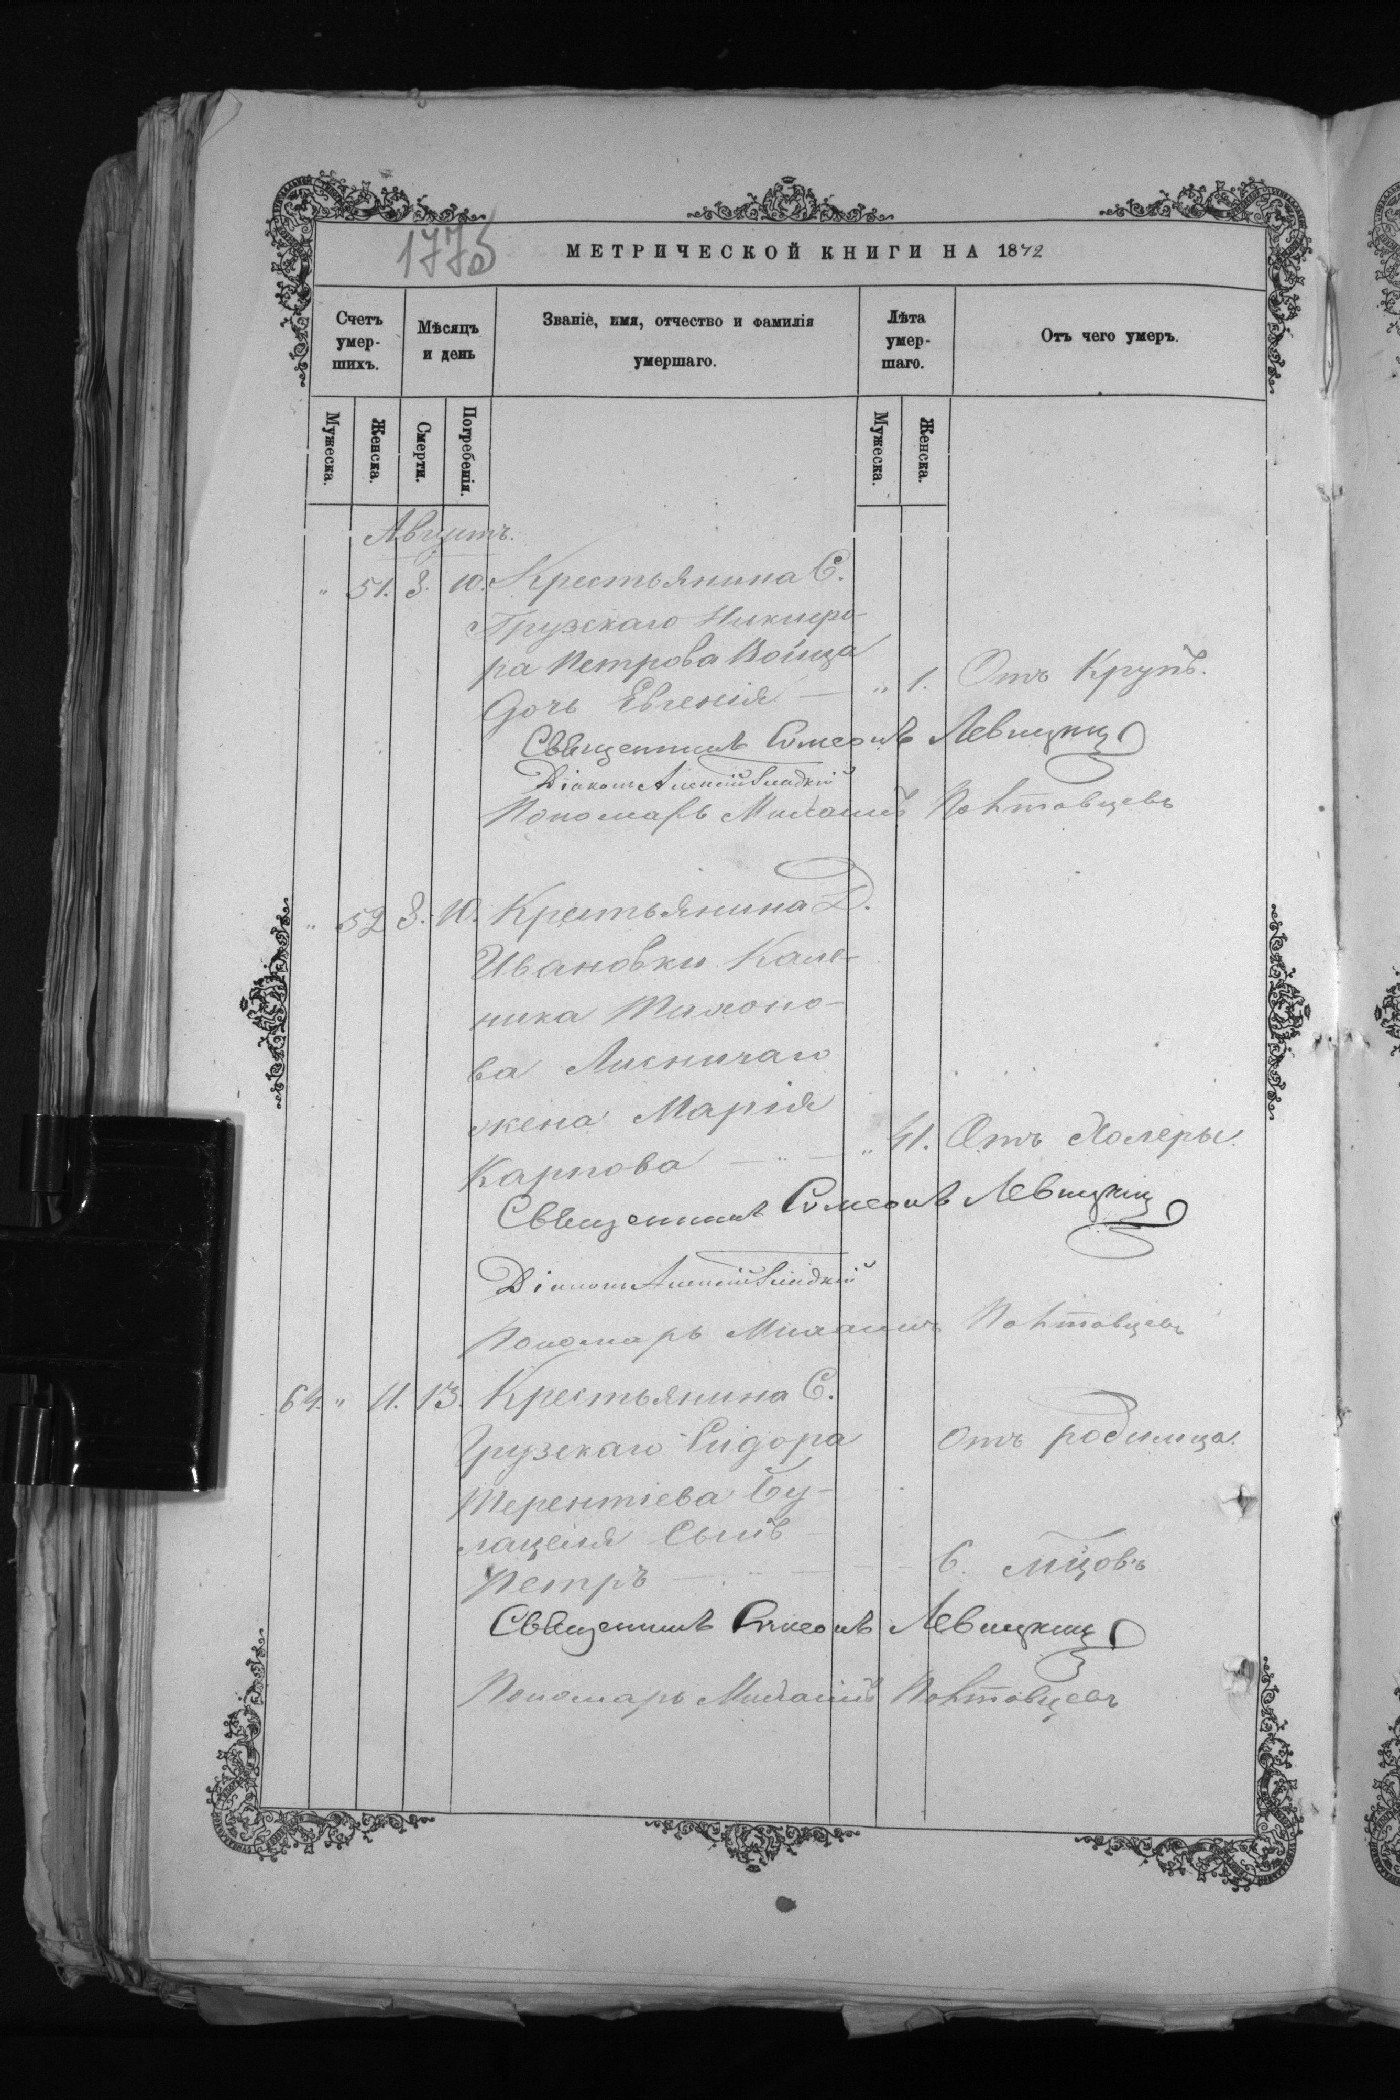 177
МЕТРИЧЕСКОЙ КНИГИ НА 1872
Счетъ умер-шихъ.
Мѣсяцъ и день
Званіе, имя, отчество и фамилія умершаго.
Лѣта умер-шаго.
Отъ чего умеръ.
Мужеска.
Женска.
Смерти.
Погребенія.
Мужеска.
Женска.
Августъ.
" 51. 8. 10. Крестьянина С.
Грузскаго Никифо-
ра Петрова Войца
дочь Евгенія — " 1. Отъ Крупъ.
Священникъ Симеонъ Левицкій
Діаконъ Алексій Гладкій
Пономарь Михаилъ
" 52 8. 10. Крестьянина Д.
Ивановки Кале-
ника Тихоно-
ва Лисничаго
жена Марія
Карпова — " — " 41. Отъ Холеры.
Священникъ Симеонъ Левицкій
Діаконъ Алексій Гладкій
Пономарь Михаилъ
64. " 11. 13. Крестьянина С.
Грузскаго Сидора Отъ родимца.
Терентіева Бу-
лацеля сынъ
Петръ — 6. мцовъ
Священникъ Симеонъ Левицкій
Пономарь Михаилъ